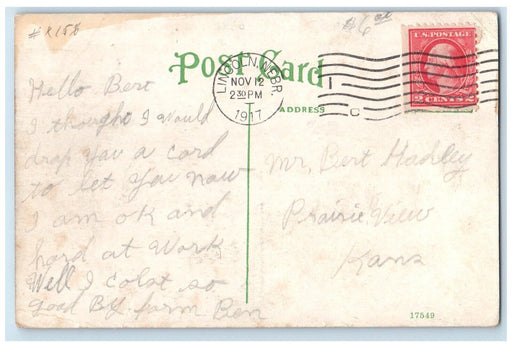 # X158
$6 ct
Post Card
LINCOLN, NEBR.
NOV 12
2 30 PM
1917
1
C
U.S. POSTAGE
2 CENTS 2
ADDRESS
Hello Bert
I thought I would
drop you a card
to let you now
I am ok and
hard at Work
Well I colst so
good By. form Ben
Mr. Bert Hadley
Prairie View
Kans
17549